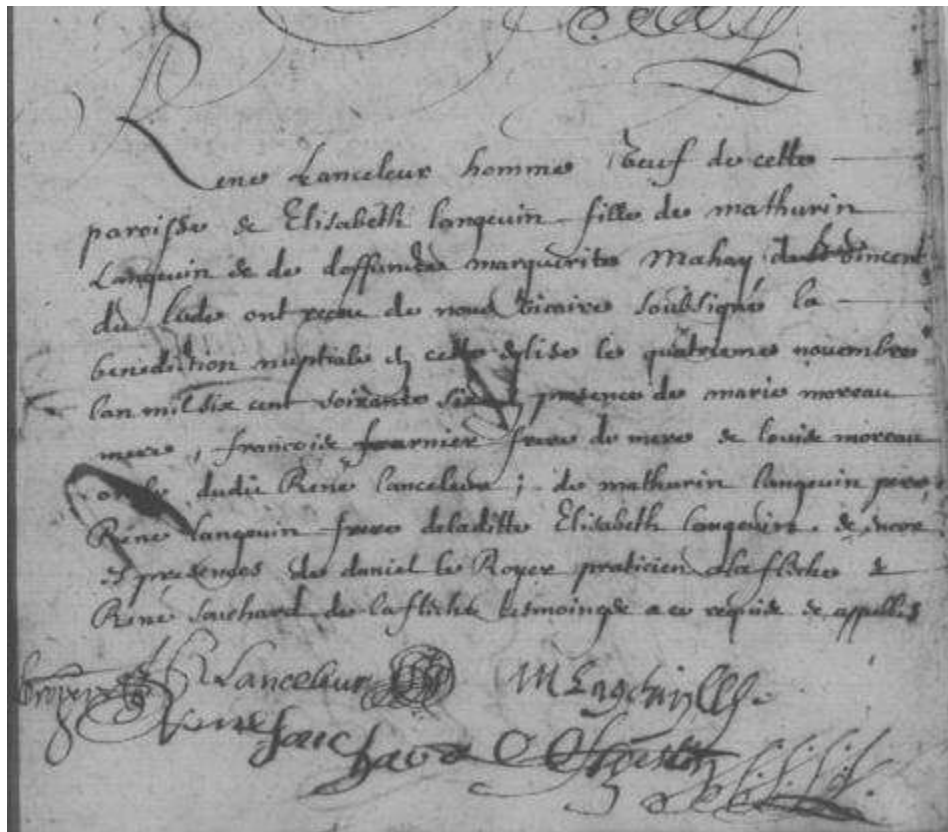 Rene Lanceleur homme veuf de cette
paroisse & Elisabeth Langevin fille de mathurin
Langevin & de deffuncte marguerite Mahay de St Vincent
du Lude ont receu de nous vicaire soubsigné la
benediction nuptiale en cette eglise le quatriesme novembre
lan mil six cent soixante six presence de marie moreau
mere, francois fournier frere de mere & louis moreau
oncle dudit René Lanceleur; de mathurin Langevin pere,
René Langevin frere de laditte Elisabeth Langevin. & encore
es presences de daniel le Royer praticien a la fleche &
René Souchard de la fleche tesmoings a ce requis & appellés
R Lanceleur M Langevin
Rene Souchard